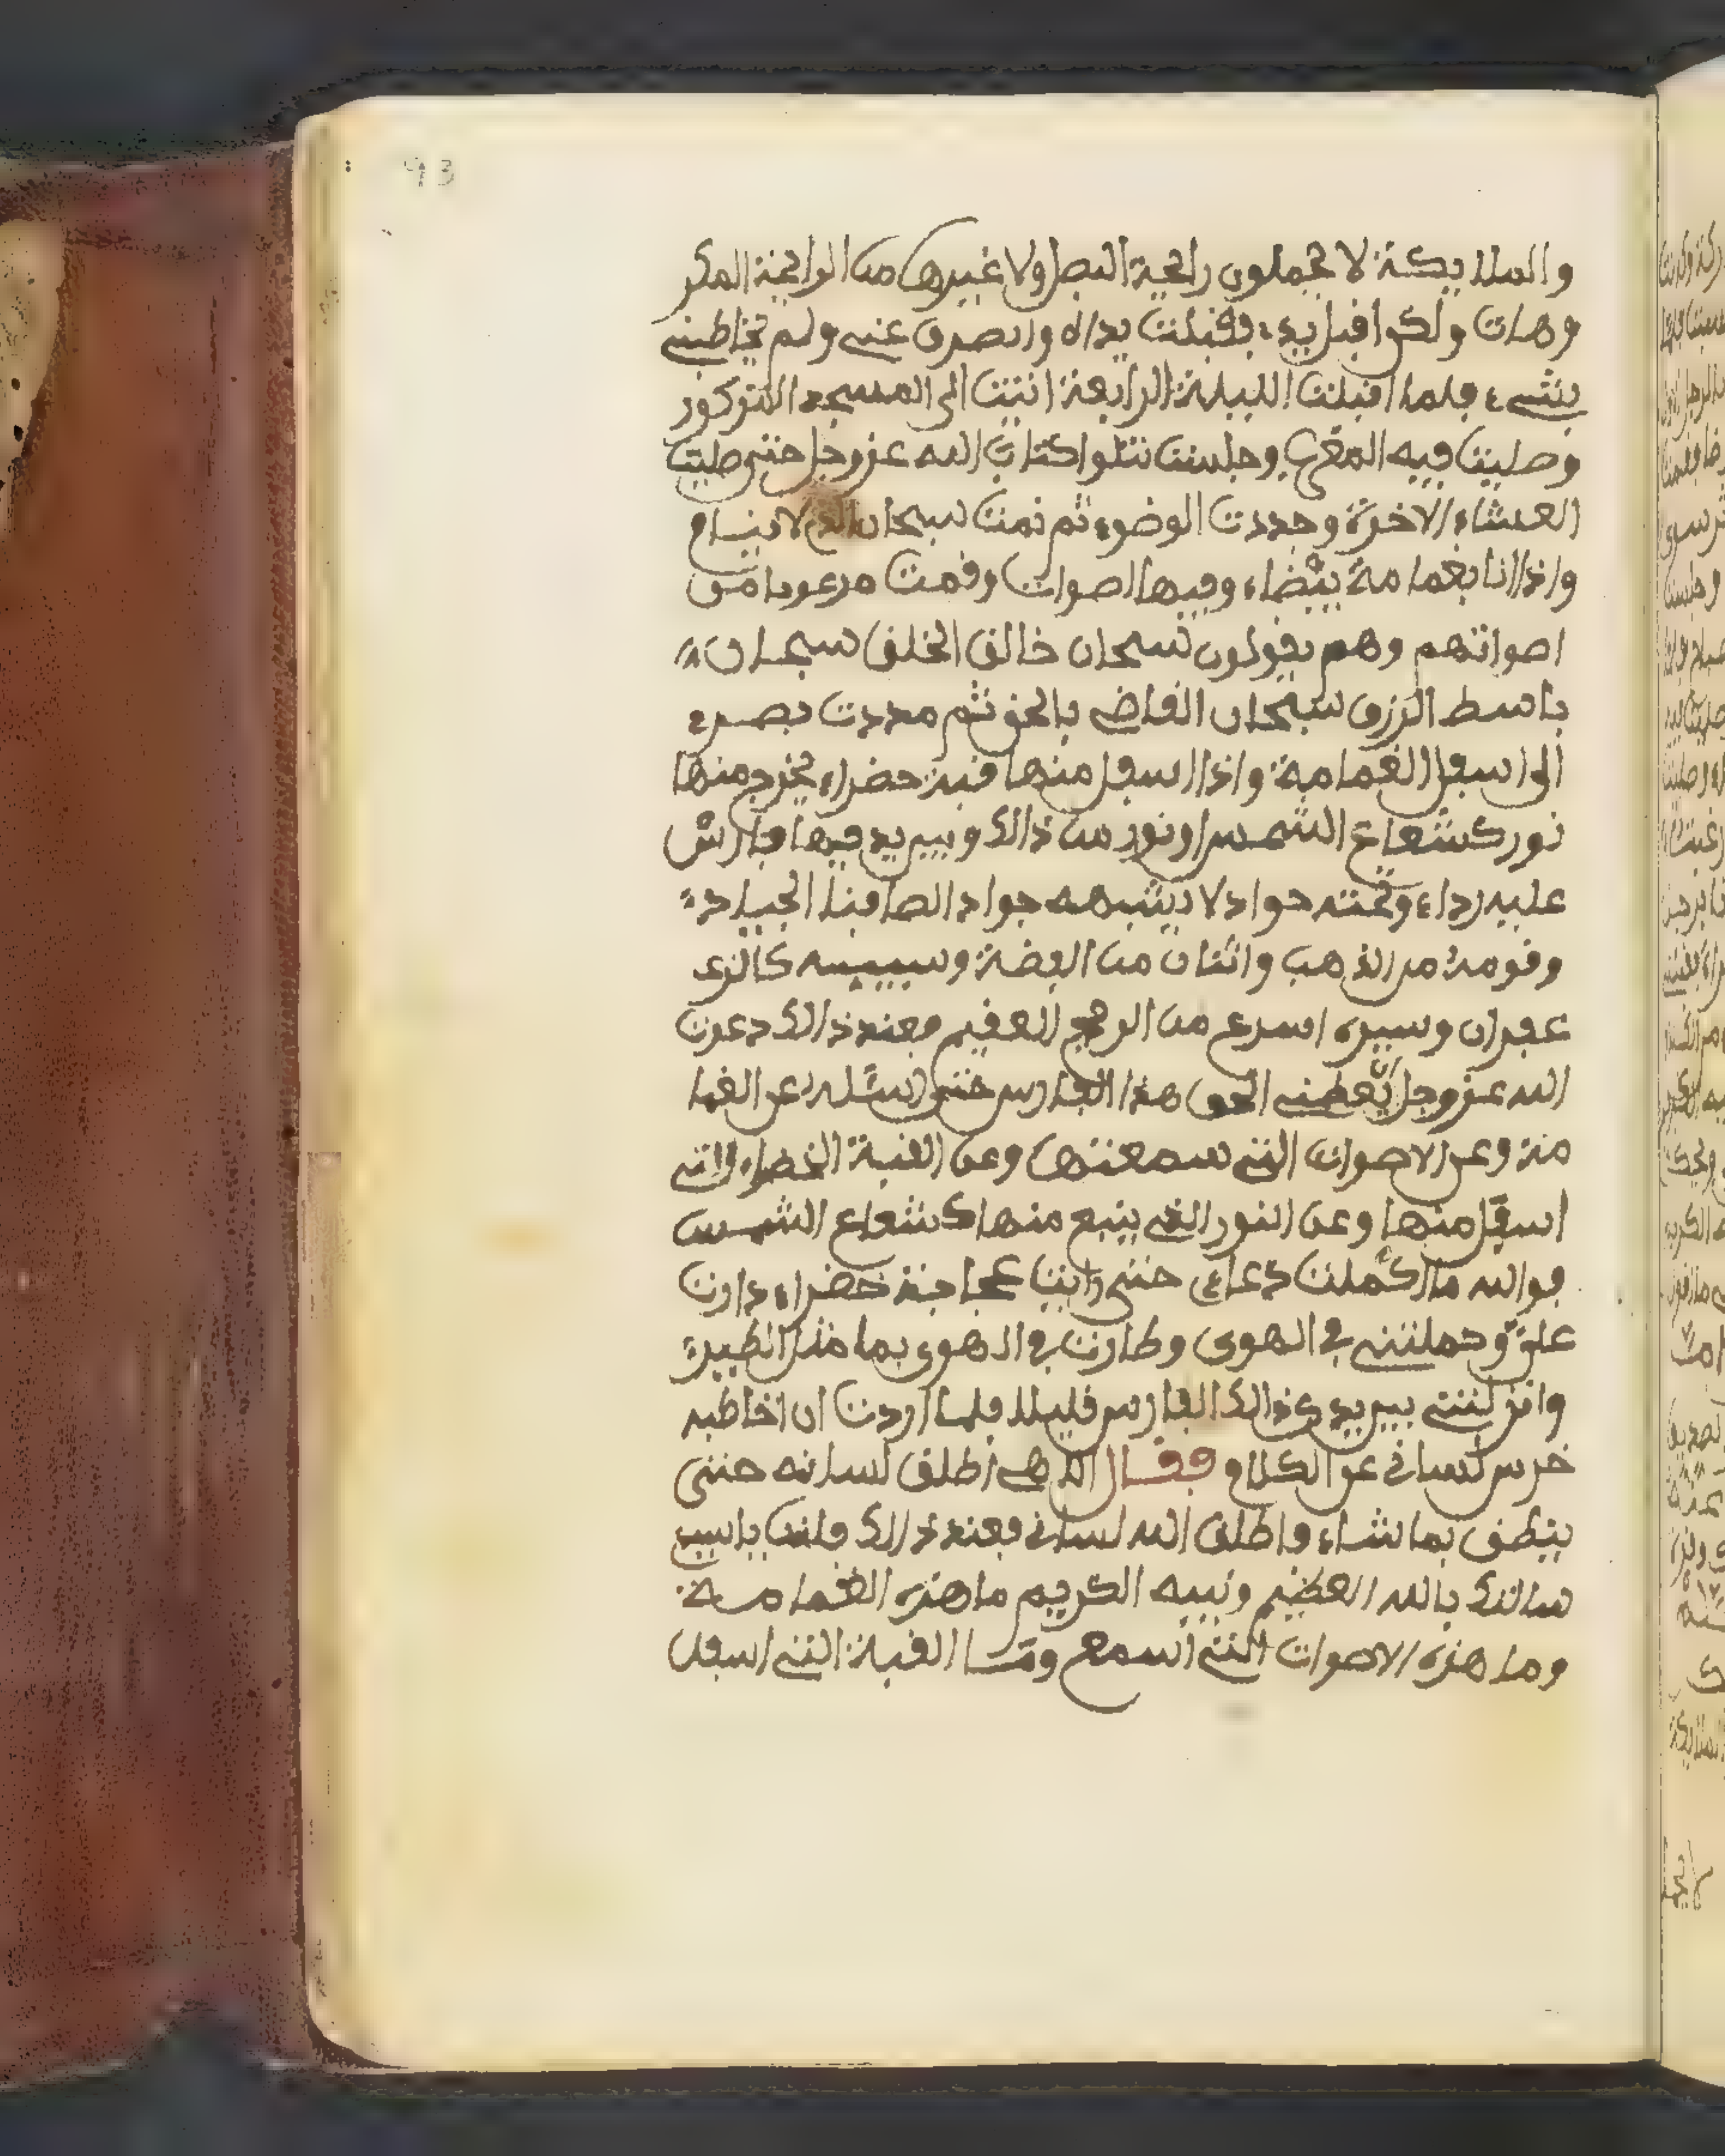 93
والملايكة لا يحملون رايحة البصل ولا غيرها من الرايحة المكر
وهات ولكن اقبل يدي فقبلت يداه وانصرف عني ولم يخاطبني
بشيء فلما اقبلت الليلة الرابعة اتيت الى المسجد المذكور
وصليت فيه المغرب وجلست نتلوا كتاب الله عز وجل حتى صليت
العشاء الاخرة وجددت الوضوء ثم نمت سبحان الذي لا ينام
واذا انا بغمامة بيضاء وفيها اصوات وقمت مرعوبا من
اصواتهم وهم يقولون سبحان خالق الخلق سبحان
باسط الرزق سبحان القاضي بالحق ثم مددت بصري
الى اسفل الغمامة واذا اسفل منها قبة خضراء يخرج منها
نور كشعاع الشمس او نور من ذالك وبين يديها فارس
عليه رداء وتحته جواد لا يشبهه جواد الصافنا الجياد
وقومة من الذهب واثنان من الفضة وسبيبه كالزع
عفران وسيره اسرع من الريح العقيم فعند ذالك دعوت
الله عز وجل يعطيني الحق هذا الفارس حتى نسئله عن الغما
مة وعن الاصوات التي سمعتها وعن القبة الخضراء التي
اسفل منها وعن النور الذي ينبع منها كشعاع الشمس
فوالله ما اكملت دعاءي حتى رايت عجاجة خضراء دارت
علي وحملتني في الهوى وطارت في الهوى بما مثل الطير
وانزلتني بين يدي ذالك الفارس قليلا فلما اردت ان اخاطبه
خرس لساني عن الكلام فقال الاهي اطلق لسانه حتى
ينطق بما شاء فاطلق الله لساني فعند ذالك قلت يا سيدي
سالتك بالله العظيم ونبيه الكريم ما هذه الغمامة
وما هذه الاصوات التي اسمع وما القبة التي اسفل